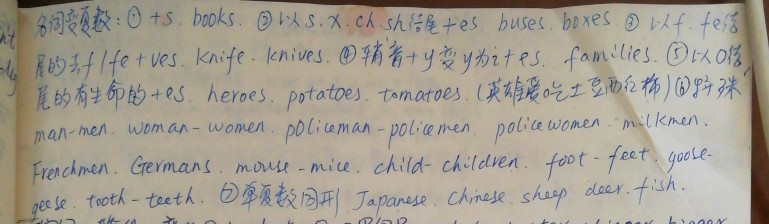 名词变复数:① +s. books. ② 以 s. x. ch. sh 结尾 +es. buses. boxes. ③ 以 f. fe 结
尾的去 f / fe + ves. knife - knives. ④ 辅音 + y 变 y 为 i + es. families. ⑤ 以 O 结
尾的有生命的 + es. heroes. potatoes. tomatoes. (英雄爱吃土豆西红柿) ⑥ 特殊
man-men. woman-women. policeman-policemen. policewomen. milkmen.
Frenchmen. Germans. mouse-mice. child-children. foot-feet. goose-
geese. tooth-teeth. ⑦ 单复数同形 Japanese. Chinese. sheep deer. fish.